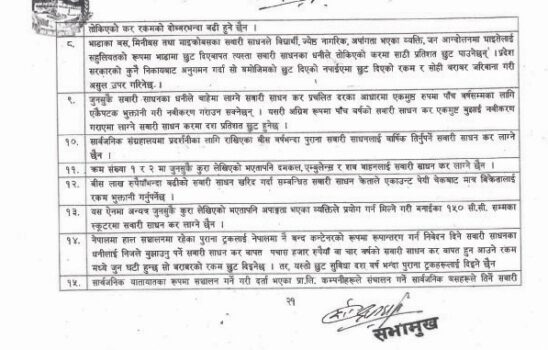 तोकिएको कर रकमको दोब्बरभन्दा बढी हुने छैन ।
८. भाडाका बस, मिनीबस तथा माइक्रोबसका सवारी साधनले विद्यार्थी, ज्येष्ठ नागरिक, अपाङ्गता भएका व्यक्ति, जन आन्दोलनमा घाइतेलाई
सहुलियतको रूपमा भाडामा छुट दिएबापत त्यस्ता सवारी साधनका धनीले तोकिएको करमा साठी प्रतिशत छुट पाउनेछन् । प्रदेश
सरकारको कुनै निकायबाट अनुगमन गर्दा सो बमोजिमको छुट दिएको नपाईएमा छुट दिएको रकम र सोही बराबर जरिवाना गरी
असुल उपर गरिनेछ ।
९. जुनसुकै सवारी साधनका धनीले चाहेमा लाग्ने सवारी साधन कर प्रचलित दरका आधारमा एकमुष्ठ रूपमा पाँच वर्षसम्मका लागि
एकैपटक भुक्तानी गरी नवीकरण गराउन सक्नेछन् । यसरी अग्रिम रूपमा पाँच वर्षको सवारी साधन कर एकमुष्ट बुझाई नवीकरण
गराएमा लाग्ने सवारी साधन करमा दश प्रतिशत छुट हुनेछ ।
१०. सार्वजनिक संग्रहालयमा प्रदर्शनीका लागि राखिएका बीस वर्षभन्दा पुराना सवारी साधनलाई वार्षिक तिर्नुपर्ने सवारी साधन कर लाग्ने
छैन ।
११. क्रम संख्या १ र २ मा जुनसुकै कुरा लेखिएको भएतापनि दमकल, एम्बुलेन्स र शव वाहनलाई सवारी साधन कर लाग्ने छैन ।
१२. बीस लाख रुपैयाँभन्दा बढीको सवारी साधन खरिद गर्दा सम्बन्धित सवारी साधन क्रेताले एकाउन्ट पेयी चेकबाट मात्र बिक्रेतालाई
रकम भुक्तानी गर्नुपर्नेछ ।
१३. यस ऐनमा अन्यत्र जुनसुकै कुरा लेखिएको भएतापनि अपाङ्गता भएका व्यक्तिले प्रयोग गर्न मिल्ने गरी बनाईका १५० सी.सी. सम्मका
स्कुटरमा सवारी साधन कर लाग्ने छैन ।
१४. नेपालमा हाल सञ्चालनमा रहेका पुराना ट्रकलाई नेपालमा नै बन्द कन्टेनरको रूपमा रूपान्तरण गर्न निवेदन दिने सवारी साधनका
धनीलाई निजले बुझाउनु पर्ने सवारी साधन कर बापत पचास हजार रुपैयाँ वा चार वर्षको सवारी साधन कर बापत हुन आउने रकम
मध्ये जुन घटी हुन्छ सो बराबरको रकम छुट दिइनेछ । तर, यस्तो छुट सुविधा दश वर्ष भन्दा पुराना ट्रकहरूलाई दिइने छैन
१५. सार्वजनिक यातायातका रूपमा सञ्चालन गर्ने गरी दर्ता भएका प्रा.लि. कम्पनीहरूले संचालन गर्ने सार्वजनिक बसहरूले तिर्ने सवारी
२१
सभामुख